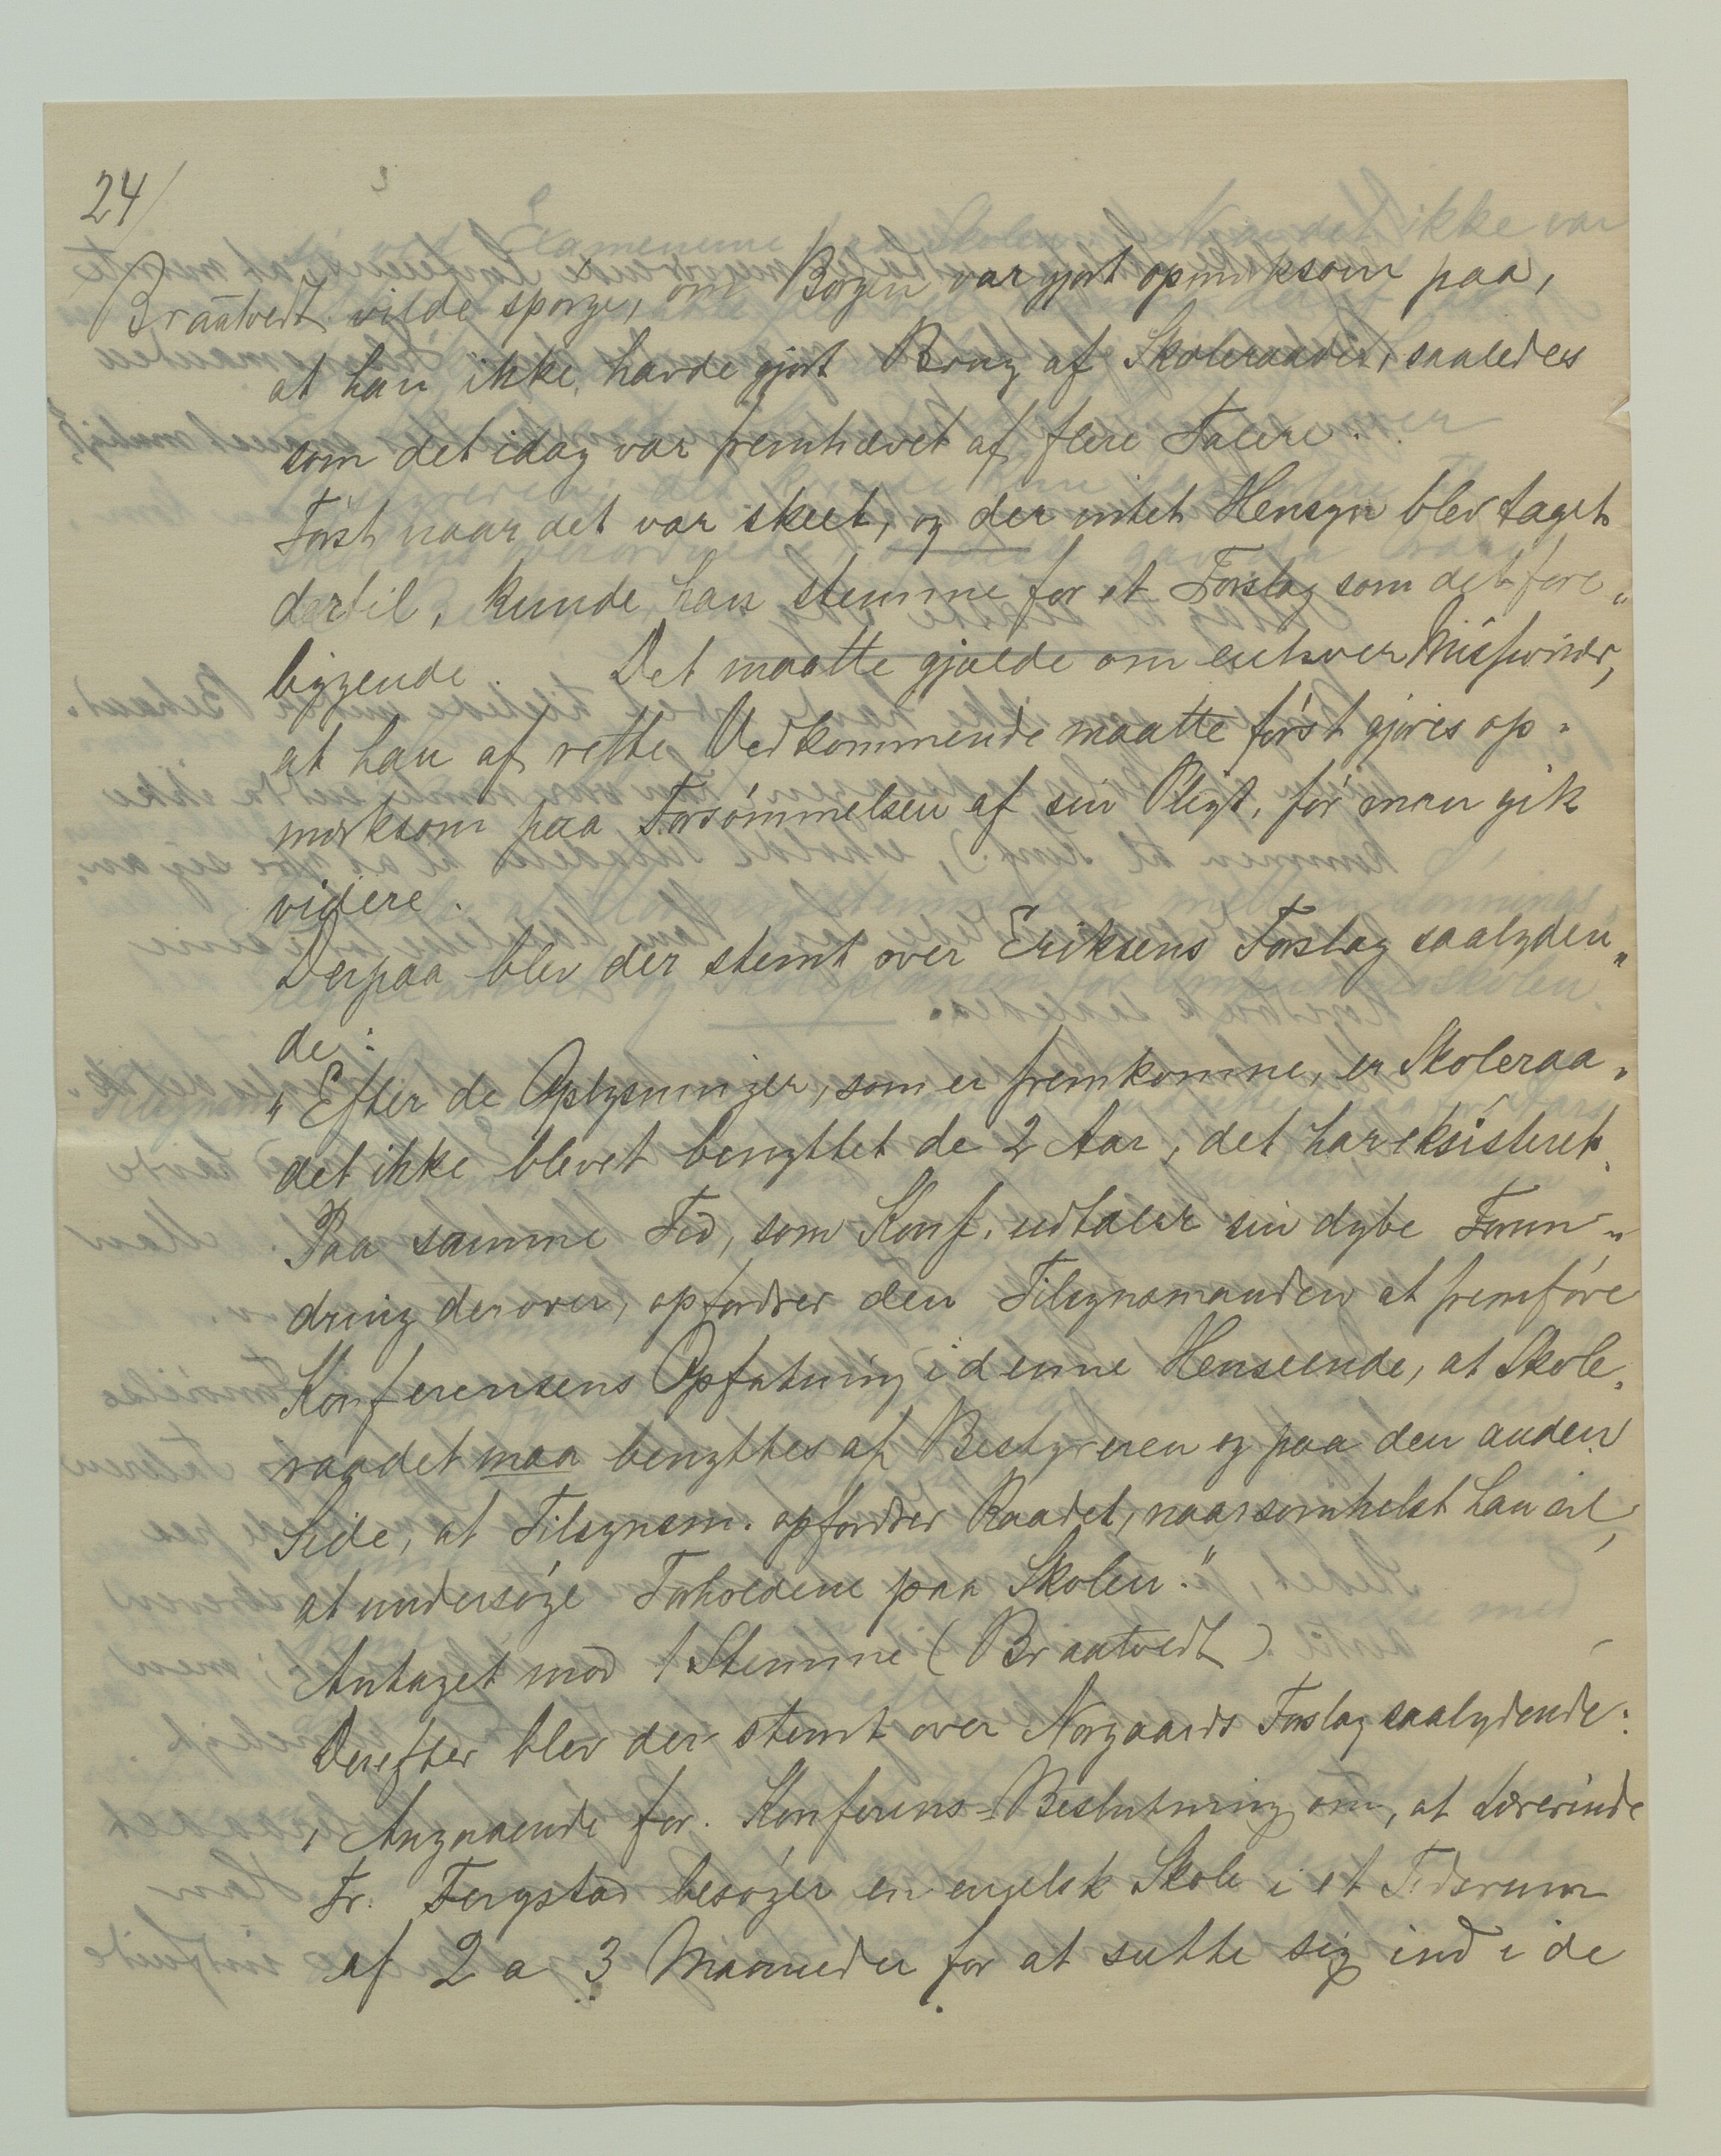 24/
Braatvedt vilde spørge, om Borgen var gjort opmerksom paa,
at han ikke havde gjort Brug af Skoleraadet, saaledes
som det idag var fremhævet af flere Talere.
Først naar det var skeet, og der intet Hensyn blev taget
dertil, kunde han stemme for et Forslag som det fore„
liggende. Det maatte gjælde om enhver Missionær,
at han af rette Vedkommende maatte først gjøres op„
merksom paa Forsømmelsen af sin Pligt, før man gik
videre.
Derpaa blev der stemt over Eriksens Forslag saalyden„
de:
„Efter de Oplysninger, som er fremkomne, er Skoleraa„
det ikke blevet benyttet de 2 Aar, det har eksisteret.
Paa samme Tid, som Konf. udtaler sin dybe Forun„
dring derover, opfordrer den Tilsynsmanden at fremføre
Konferensens Opfatning i denne Henseende, at Skole„
raadet maa benyttes af Bestyreren og paa den anden
Side, at Tilsynsm. opfordrer Raadet, naarsomhelst han vil,
at undersøge Forholdene paa Skolen."
Antaget mod 1 Stemme (Braatvedt).
Derefter blev der stemt over Norgaards Forslag saalydende:
„Angaaende for. Konferens-Beslutning om, at Lærerinde
Fr. Tergstad besøger en engelsk Skole i et Tidsrum
af 2 a 3 Maaneder for at sætte sig ind i de